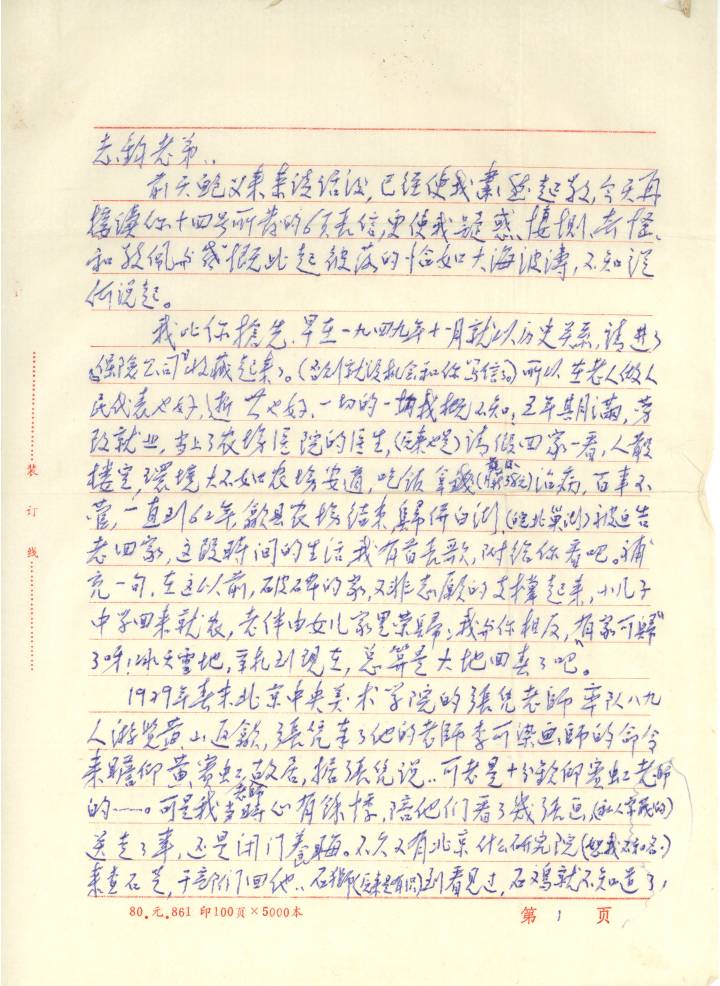 志鈞老弟：
前天鲍义来来谈话后，已经使我肃然起敬，今天再
接读你十四号所发的6页長信，更使我疑惑、悽惻、奇怪、
和敬佩与感慨此起彼落的恰如大海波濤，不知從
何说起。
我比你搶先，早在一九四九年十一月就以历史关系，请进了
"保险公司"收藏起来了。(否则就没机会和你写信了)所以在老人做人
民代表也好，逝世也好，一切的一切我概不知，五年期满，劳
改就业，当上了农场医院的医生，请假回家一看，人散
樓空，環境大不如农场安適，吃饭拿錢治病，百事不
管，一直到62年，歙县农场结束，歸併白湖，(皖北巢湖)被迫告
老回家，这段時间的生活，我有首長歌，附给你看吧。補
充一句，在这以前，破碎的家，又非志愿的支撑起来，小儿子
中学回来就农，老伴由女儿家里荣歸，我与你相反，"有家可歸"
了呀！冰天雪地，到现在，总算是大地回春了吧。
1979年春末北京中央美术学院的張凭老師率队八九
人游览黄山返歙，張凭奉了他的老師李可染画師的命令
来瞻仰黄賓虹故居，据張凭说：可老是十分钦仰賓虹老師
的——。可是我当時心有餘悸，陪他们看了幾張画，(私人家藏的)
送走了事，还是闭门養晦。不久又有北京什么研究院(恕我不知名)
来查石芝，干部们回他：石獅到看见过，石鸡就不知道了，
装订线
80.元.861 印100页×5000本
第 1 页